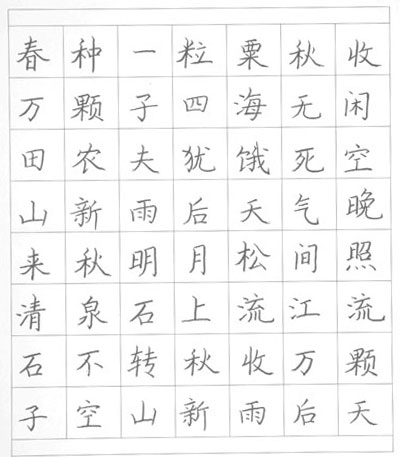 春种一粒粟秋收
万颗子四海无闲
田农夫犹饿死空
山新雨后天气晚
来秋明月松间照
清泉石上流江流
石不转秋收万颗
子空山新雨后天